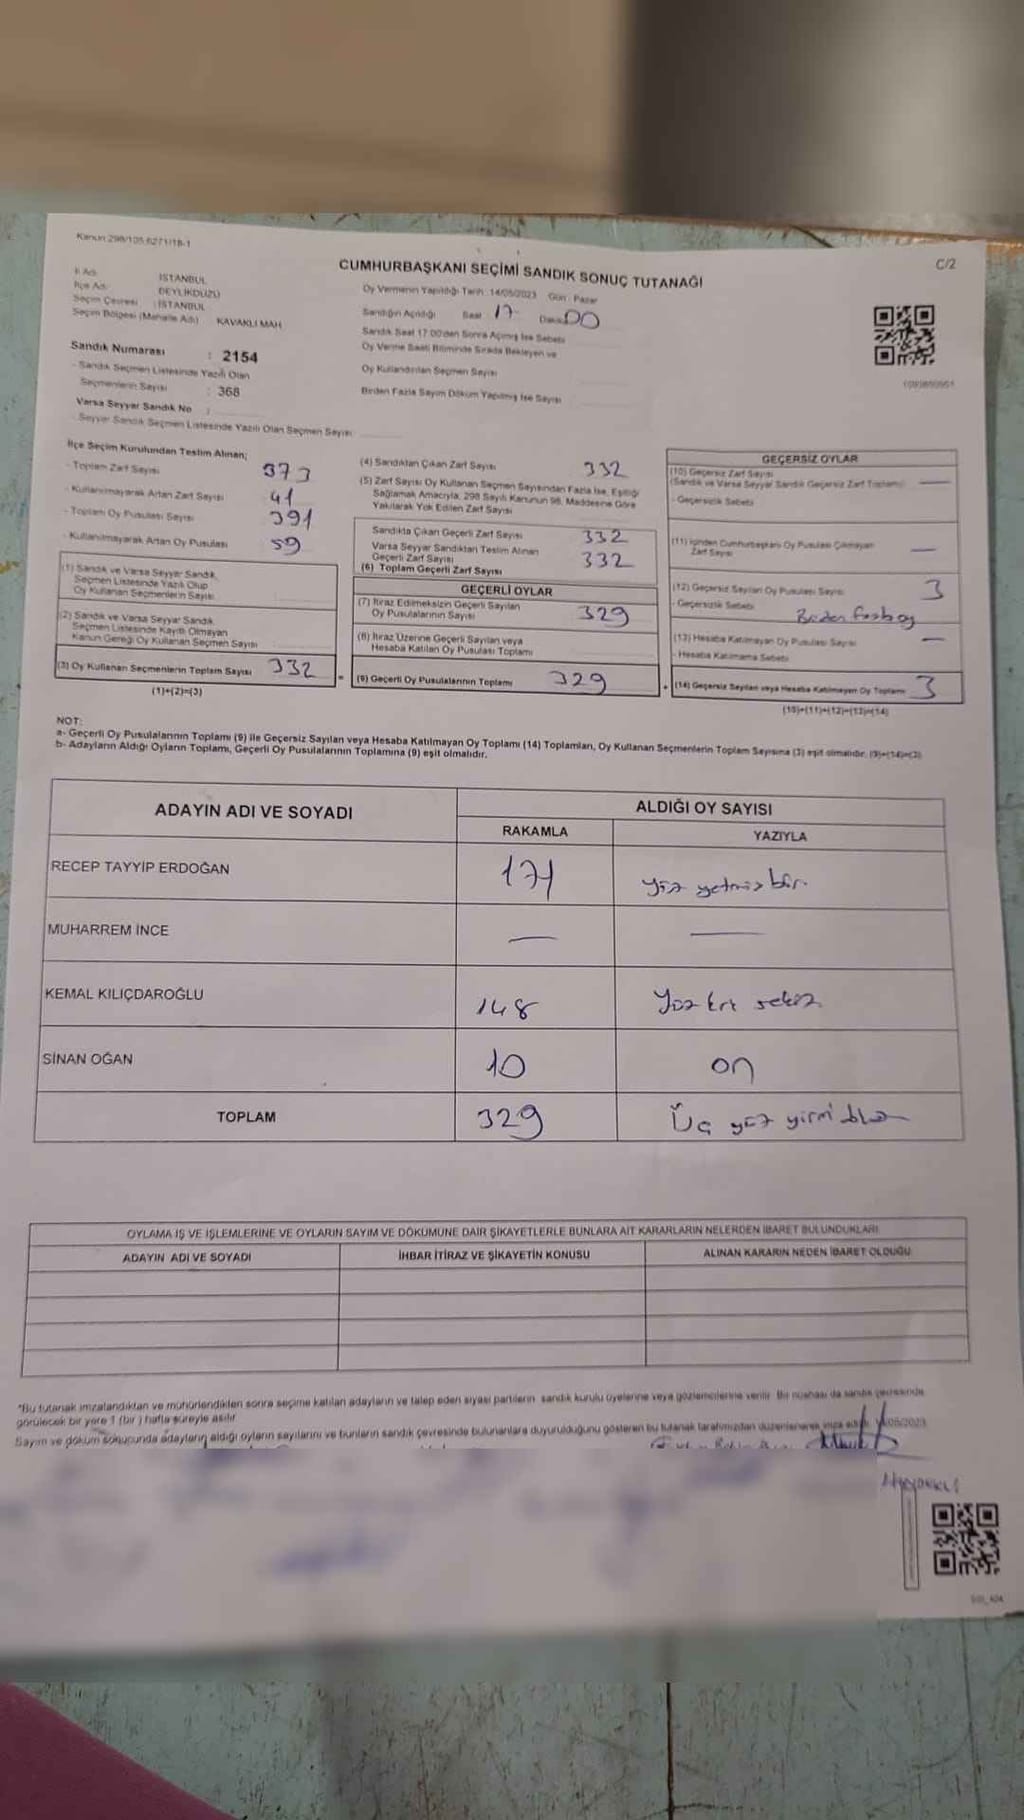 Kanun:298/105,6271/18-1
C/2
CUMHURBAŞKANI SEÇİMİ SANDIK SONUÇ TUTANAĞI
İl Adı : İSTANBUL
İlçe Adı : BEYLİKDÜZÜ
Seçim Çevresi : İSTANBUL
Seçim Bölgesi (Mahalle Adı) : KAVAKLI MAH
Sandık Numarası : 2154
- Sandık Seçmen Listesinde Yazılı Olan
Seçmenlerin Sayısı : 368
Varsa Seyyar Sandık No :
- Seyyar Sandık Seçmen Listesinde Yazılı Olan Seçmen Sayısı
Oy Vermenin Yapıldığı Tarih : 14/05/2023 Gün : Pazar
Sandığın Açıldığı Saat 17 Dakika 00
Sandık Saat 17:00'den Sonra Açılmış İse Sebebi
Oy Verme Saati Bitiminde Sırada Bekleyen ve
Oy Kullandırılan Seçmen Sayısı
Birden Fazla Sayım Döküm Yapılmış İse Sayısı
İlçe Seçim Kurulundan Teslim Alınan;
- Toplam Zarf Sayısı 373
- Kullanılmayarak Artan Zarf Sayısı 41
- Toplam Oy Pusulası Sayısı 391
- Kullanılmayarak Artan Oy Pusulası 59
(1) Sandık ve Varsa Seyyar Sandık
Seçmen Listesinde Yazılı Olup
Oy Kullanan Seçmenlerin Sayısı
(2) Sandık ve Varsa Seyyar Sandık
Seçmen Listesinde Kayıtlı Olmayan
Kanun Gereği Oy Kullanan Seçmen Sayısı
(3) Oy Kullanan Seçmenlerin Toplam Sayısı 332
(1)+(2)=(3)
(4) Sandıktan Çıkan Zarf Sayısı 332
(5) Zarf Sayısı Oy Kullanan Seçmen Sayısından Fazla İse, Eşitliği
Sağlamak Amacıyla, 298 Sayılı Kanunun 98. Maddesine Göre
Yakılarak Yok Edilen Zarf Sayısı
Sandıkta Çıkan Geçerli Zarf Sayısı 332
Varsa Seyyar Sandıktan Teslim Alınan
Geçerli Zarf Sayısı
(6) Toplam Geçerli Zarf Sayısı 332
GEÇERLİ OYLAR
(7) İtiraz Edilmeksizin Geçerli Sayılan
Oy Pusulalarının Sayısı 329
(8) İtiraz Üzerine Geçerli Sayılan veya
Hesaba Katılan Oy Pusulası Toplamı
(9) Geçerli Oy Pusulalarının Toplamı 329
GEÇERSİZ OYLAR
(10) Geçersiz Zarf Sayısı
(Sandık ve Varsa Seyyar Sandık Geçersiz Zarf Toplamı) —
- Geçersizlik Sebebi
(11) İçinden Cumhurbaşkanı Oy Pusulası Çıkmayan
Zarf Sayısı —
(12) Geçersiz Sayılan Oy Pusulası Sayısı 3
- Geçersizlik Sebebi
(13) Hesaba Katılmayan Oy Pusulası Sayısı —
- Hesaba Katılmama Sebebi
(14) Geçersiz Sayılan veya Hesaba Katılmayan Oy Toplamı 3
(10)+(11)+(12)+(13)=(14)
NOT:
a- Geçerli Oy Pusulalarının Toplamı (9) ile Geçersiz Sayılan veya Hesaba Katılmayan Oy Toplamı (14) Toplamları, Oy Kullanan Seçmenlerin Toplam Sayısına (3) eşit olmalıdır. (9)+(14)=(3)
b- Adayların Aldığı Oyların Toplamı, Geçerli Oy Pusulalarının Toplamına (9) eşit olmalıdır.
ADAYIN ADI VE SOYADI ALDIĞI OY SAYISI
RAKAMLA YAZIYLA
RECEP TAYYİP ERDOĞAN 171 yüz yetmiş bir
MUHARREM İNCE — —
KEMAL KILIÇDAROĞLU 148 Yüz kırk sekiz
SİNAN OĞAN 10 on
TOPLAM 329 Üç yüz yirmi dokuz
OYLAMA İŞ VE İŞLEMLERİNE VE OYLARIN SAYIM VE DÖKÜMÜNE DAİR ŞİKAYETLERLE BUNLARA AİT KARARLARIN NELERDEN İBARET BULUNDUKLARI
ADAYIN ADI VE SOYADI İHBAR İTİRAZ VE ŞİKAYETİN KONUSU ALINAN KARARIN NEDEN İBARET OLDUĞU
*Bu tutanak imzalandıktan ve mühürlendikten sonra seçime katılan adayların ve talep eden siyasi partilerin sandık kurulu üyelerine veya gözlemcilerine verilir. Bir nüshası da sandık çevresinde
görülecek bir yere 1 (bir) hafta süreyle asılır.
Sayım ve döküm sonucunda adayların aldığı oyların sayılarını ve bunların sandık çevresinde bulunanlara duyurulduğunu gösteren bu tutanak tarafımızdan düzenlenerek imza edildi.